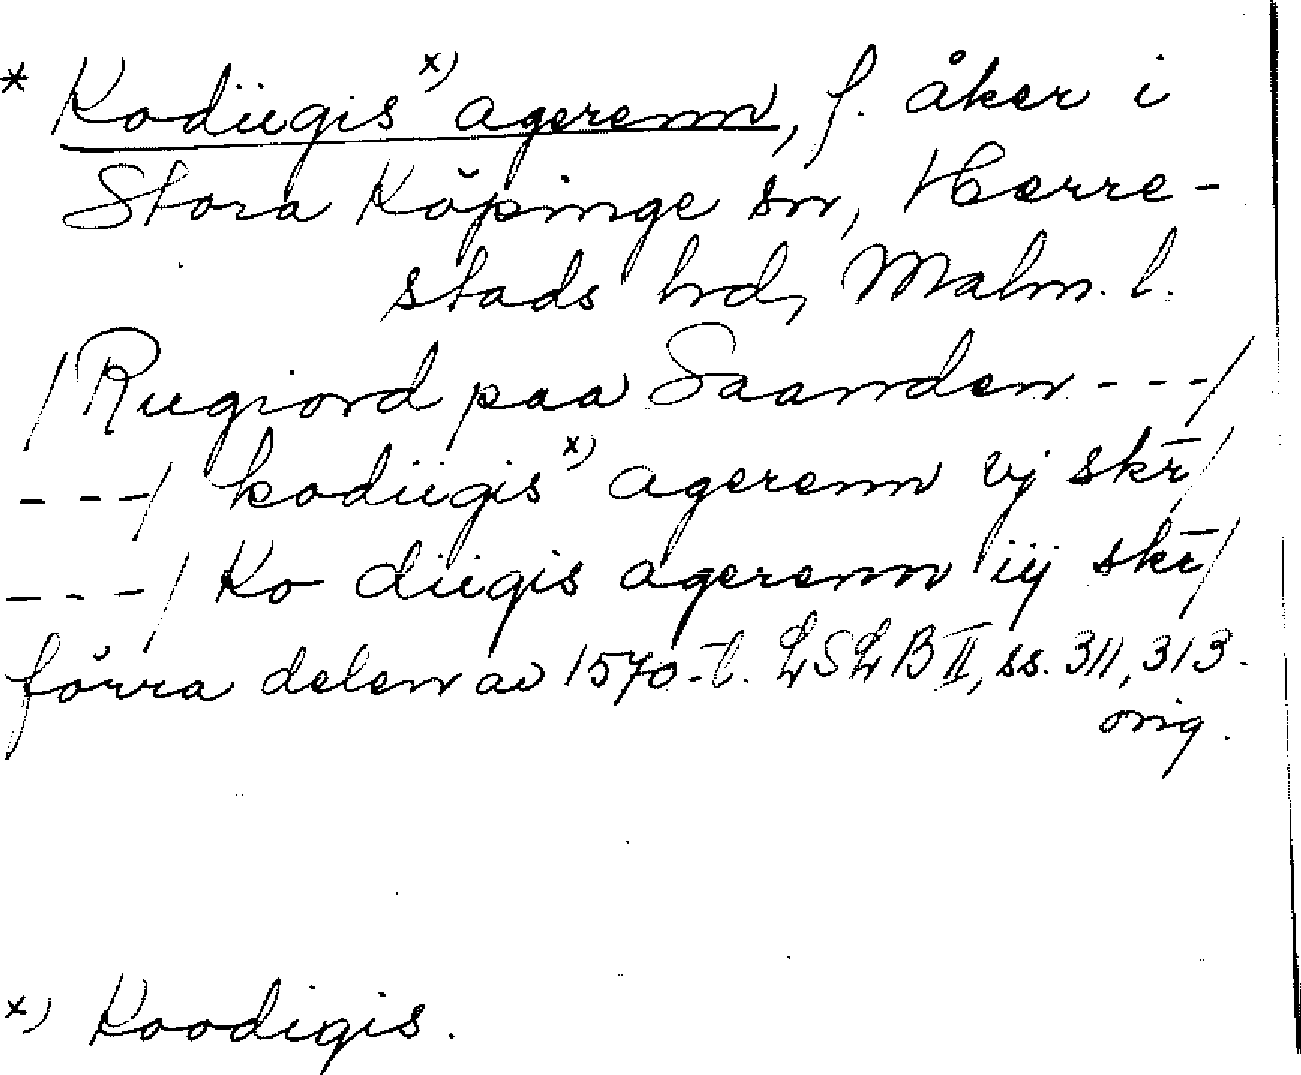 * Kodügis x) agerenn, f. åker i
Stora Köpinge sn, Herre-
stads hrd, Malm. l.
/ Rugiord paa Saanden - - - /
- - - / kodügis x) agerenn vj skr /
- - - / Ko dügis agerenn iij skr /
förra delen av 1570-t. LSLB II, ss. 311, 313.
orig.
x) Koodigis.